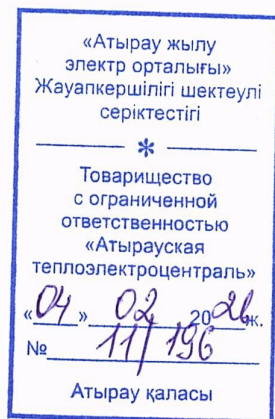 «Атырау жылу
электр орталығы»
Жауапкершілігі шектеулі
серіктестігі
*
Товарищество
с ограниченной
ответственностью
«Атырауская
теплоэлектроцентраль»
«04» 02 2026ж.
№ 11/196
Атырау қаласы